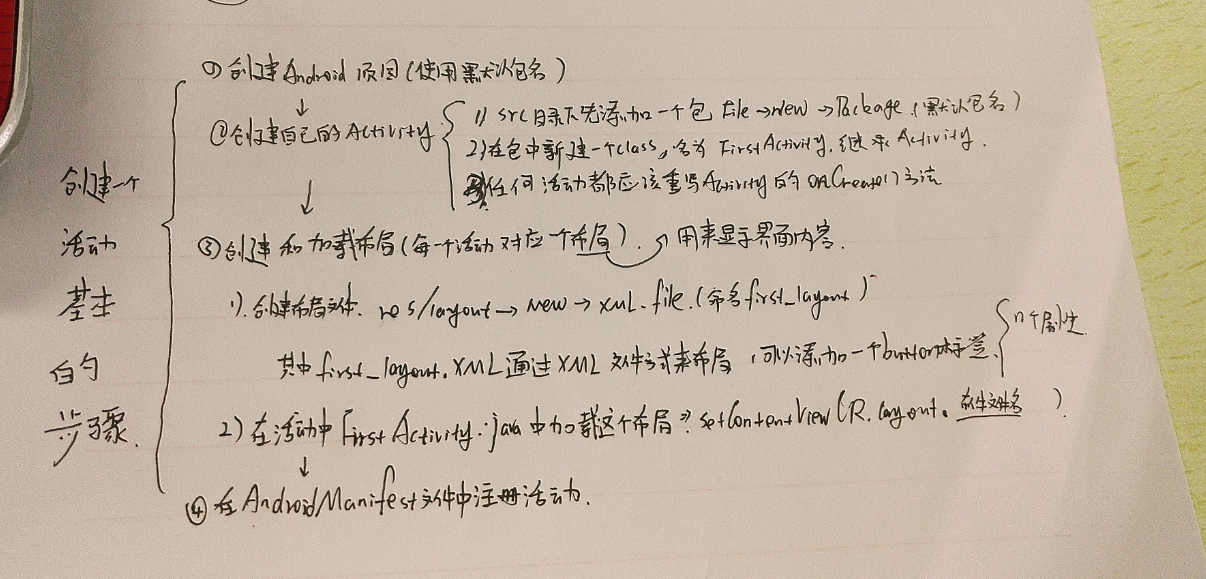 创建一个
活动
基本
的
步骤.
①创建Android项目(使用默认包名)
↓
②创建自己的Activity
1) src目录下先添加一个包 File→new→Package.(默认包名)
2)在包中新建一个class,名为FirstActivity.继承Activity.
任何活动都应该重写Activity的onCreate()方法
↓
③创建和加载布局(每一个活动对应一个布局). 用来显示界面内容.
1).创建布局文件. res/layout→New→XML.file.(命名first_layout)
其中first_layout.XML通过XML文件方式来布局,可以添加一个button标签 n个属性.
2)在活动中FirstActivity.java中加载这个布局? setContentView(R.layout.布局文件名).
↓
④在AndroidManifest文件中注册活动.